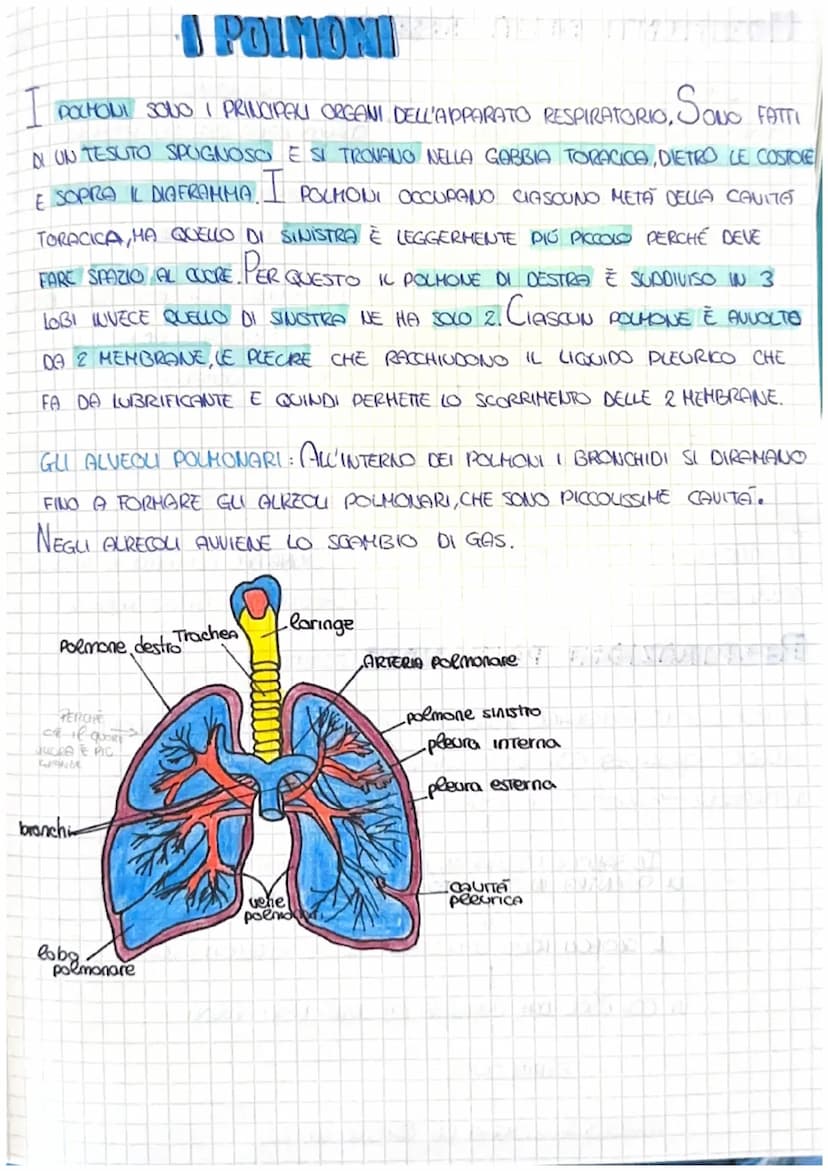 I POLMONI
I POLMONI SONO I PRINCIPALI ORGANI DELL'APPARATO RESPIRATORIO. SONO FATTI
DI UN TESUTO SPUGNOSO E SI TROVANO NELLA GABBIA TORACICA, DIETRO LE COSTOLE
E SOPRA IL DIAFRAMMA. I POLMONI OCCUPANO CIASCUNO METÀ DELLA CAVITÀ
TORACICA, MA QUELLO DI SINISTRA È LEGGERMENTE PIÙ PICCOLO PERCHÉ DEVE
FARE SPAZIO AL CUORE. PER QUESTO IL POLMONE DI DESTRA È SUDDIVISO IN 3
LOBI INVECE QUELLO DI SINISTRA NE HA SOLO 2. CIASCUN POLMONE È AVVOLTO
DA 2 MEMBRANE, LE PLEURE CHE RACCHIUDONO IL LIQUIDO PLEURICO CHE
FA DA LUBRIFICANTE E QUINDI PERMETTE LO SCORRIMENTO DELLE 2 MEMBRANE.
GLI ALVEOLI POLMONARI: ALL'INTERNO DEI POLMONI I BRONCHIDI SI DIRAMANO
FINO A FORMARE GLI ALREOLI POLMONARI, CHE SONO PICCOLISSIME CAVITÀ.
NEGLI ALREOLI AVVIENE LO SCAMBIO DI GAS.
laringe
Trachea
polmone destro
ARTERIA polmonare
polmone sinistro
PERCHÈ
c'è il
pleura interna
È PIÙ
pleura esterna
bronchi
CAVITÀ
PLEURICA
vene
lobo
polmonare